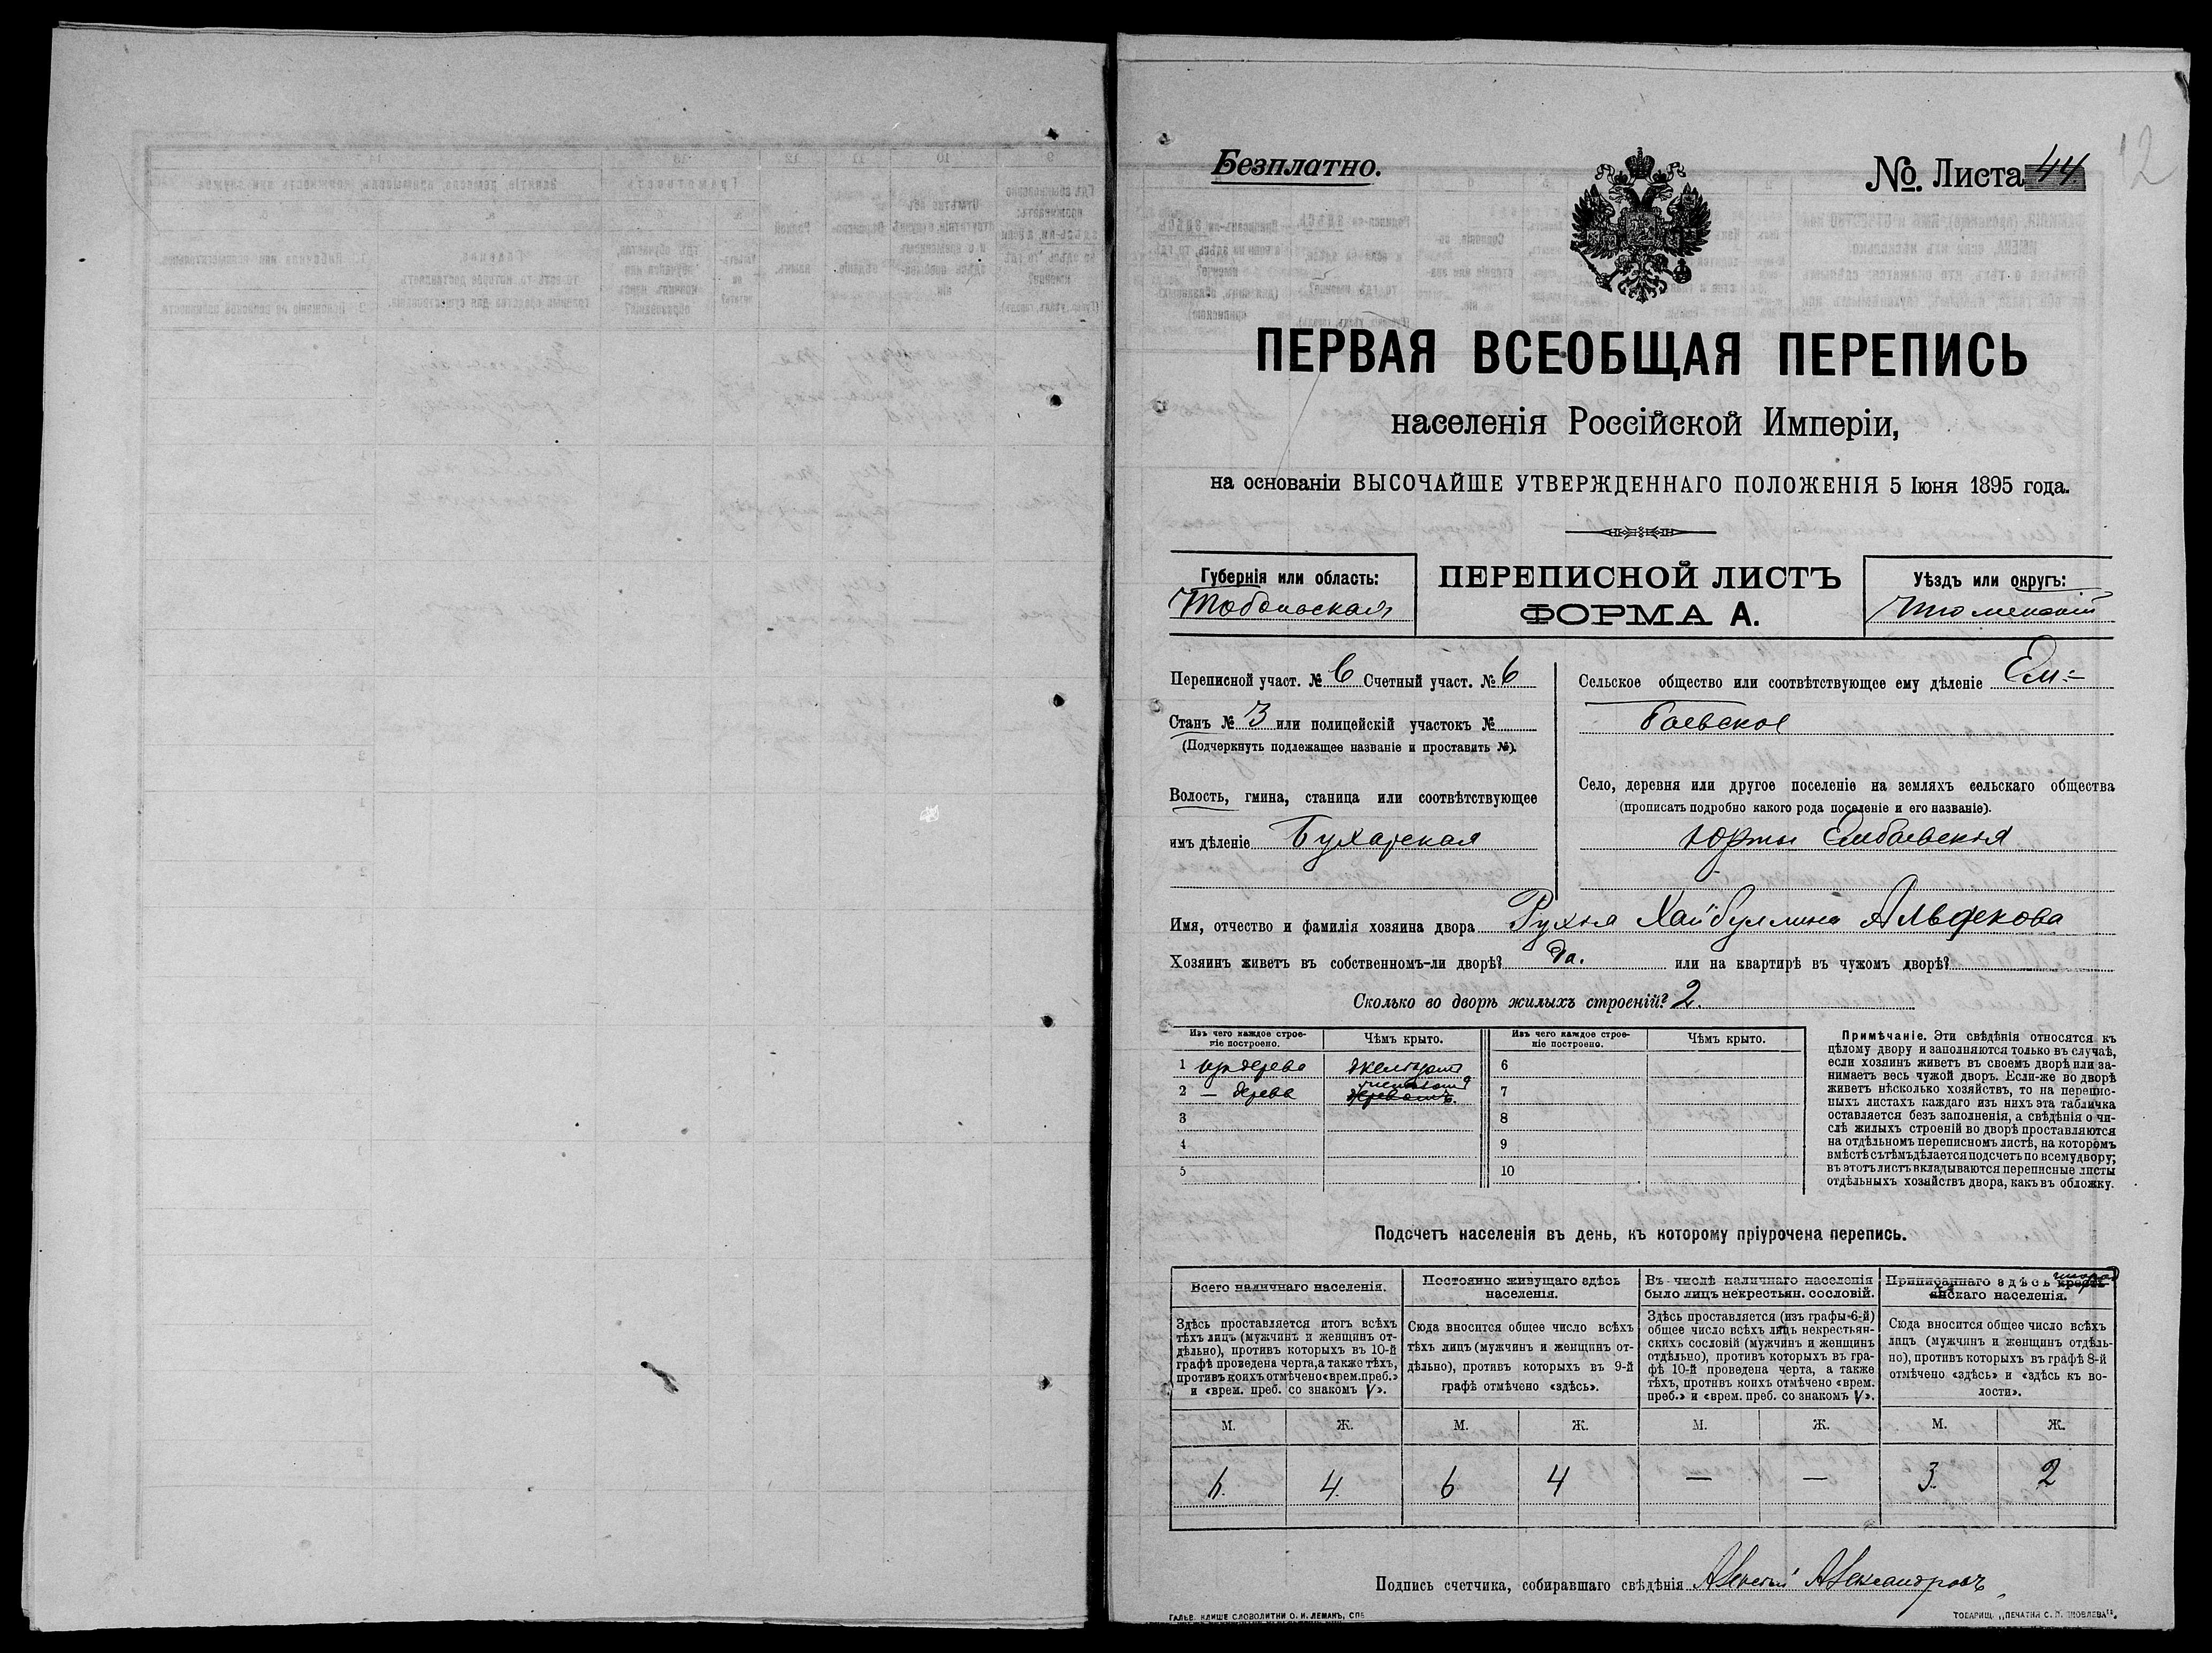 12
Безплатно.
№. Листа 44.
ПЕРВАЯ ВСЕОБЩАЯ ПЕРЕПИСЬ
населенія Россійской Имперіи,
на основаніи ВЫСОЧАЙШЕ УТВЕРЖДЕННАГО ПОЛОЖЕНІЯ 5 Іюня 1895 года.
Губернія или область:
Тобольская
ПЕРЕПИСНОЙ ЛИСТЪ
ФОРМА А.
Уѣздъ или округъ:
Тюменскій
Переписной участ. № 6 Счетный участ. № 6
Станъ № 3 или полицейскій участокъ №
(Подчеркнуть подлежащее названіе и проставить №).
Волость, гмина, станица или соотвѣтствующее
имъ дѣленіе Бухарская
Сельское общество или соотвѣтствующее ему дѣленіе Ем-
баевское
Село, деревня или другое поселеніе на земляхъ сельскаго общества
(прописать подробно какого рода поселеніе и его названіе).
Юрты Ембаевскія
Имя, отчество и фамилія хозяина двора Рухія Хайбуллина Альфекова
Хозяинъ живетъ въ собственномъ-ли дворѣ? Да. или на квартирѣ въ чужомъ дворѣ?
Сколько во дворѣ жилыхъ строеній? 2.
Изъ чего каждое строеніе построено.
Чѣмъ крыто.
Изъ чего каждое строеніе построено.
Чѣмъ крыто.
1 изъ дерева 6
2 — дерева деревомъ. 7
3 8
4 9
5 10
Примѣчаніе. Эти свѣдѣнія относятся къ
цѣлому двору и заполняются только въ случаѣ,
если хозяинъ живетъ въ своемъ дворѣ или за-
нимаетъ весь чужой дворъ. Если-же во дворѣ
живетъ нѣсколько хозяйствъ, то на перепис-
ныхъ листахъ каждаго изъ нихъ эта табличка
оставляется безъ заполненія, а свѣдѣнія о чи-
слѣ жилыхъ строеній во дворѣ проставляются
на отдѣльномъ переписномъ листѣ, на которомъ
вмѣстѣ съ тѣмъ дѣлается подсчетъ по всему двору;
въ этотъ листъ вкладываются переписные листы
отдѣльныхъ хозяйствъ двора, какъ въ обложку.
Подсчетъ населенія въ день, къ которому пріурочена перепись.
Всего наличнаго населенія.
Здѣсь проставляется итогъ всѣхъ
тѣхъ лицъ (мужчинъ и женщинъ от-
дѣльно), противъ которыхъ въ 10-й
графѣ проведена черта, а также тѣхъ,
противъ коихъ отмѣчено «врем. преб.»
и «врем. преб. со знакомъ V».
Постоянно живущаго здѣсь
населенія.
Сюда вносится общее число всѣхъ
тѣхъ лицъ (мужчинъ и женщинъ от-
дѣльно), противъ которыхъ въ 9-й
графѣ отмѣчено «здѣсь».
Въ числѣ наличнаго населенія
было лицъ некрестьян. сословій.
Здѣсь проставляется (изъ графы 6-й)
общее число всѣхъ лицъ некрестьян-
скихъ сословій (мужчинъ и женщинъ
отдѣльно), противъ которыхъ въ гра-
фѣ 10-й проведена черта, а также
тѣхъ, противъ коихъ отмѣчено «врем.
преб.» и «врем. преб. со знакомъ V».
Приписаннаго здѣсь кресть-
янскаго населенія.
Сюда вносится общее число всѣхъ
лицъ (мужчинъ и женщинъ отдѣль-
но), противъ которыхъ въ графѣ 8-й
отмѣчено «здѣсь» и «здѣсь къ во-
лости».
М. Ж. М. Ж. М. Ж. М. Ж.
6. 4. 6 4 — — 3. 2
Подпись счетчика, собиравшаго свѣдѣнія Алексѣй Александровъ
ГАЛЬВ. КЛИШЕ СЛОВОЛИТНИ О. И. ЛЕМАНЪ, СПБ.
ТОВАРИЩ. „ПЕЧАТНЯ С. П. ЯКОВЛЕВА".